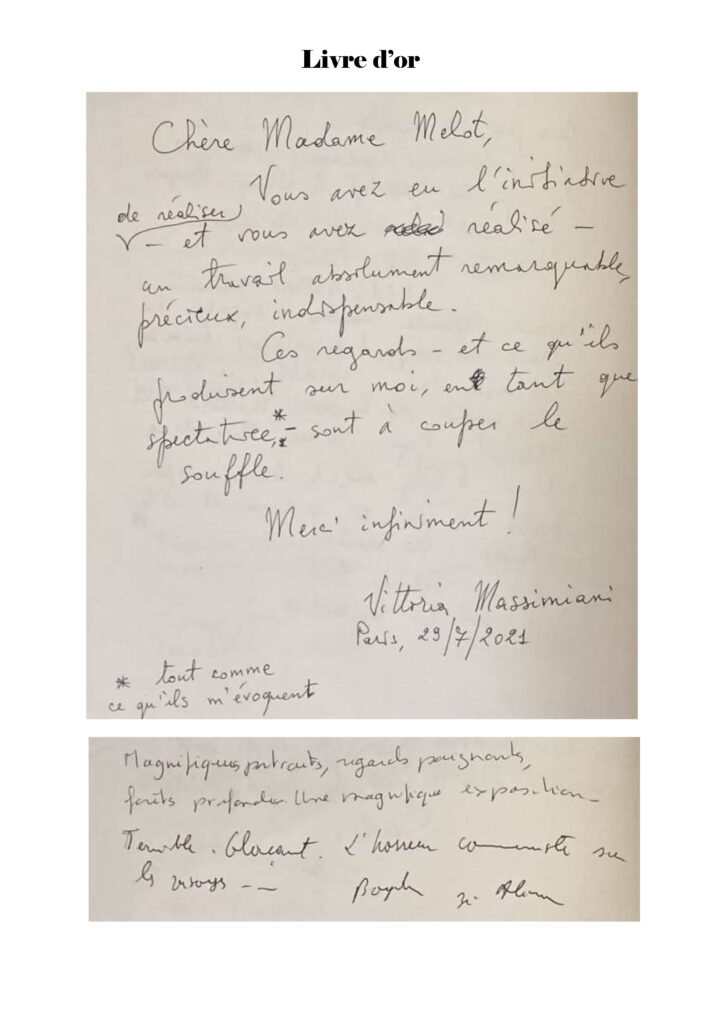 Livre d'or
Chère Madame Melot,
Vous avez eu l'initiative
de réaliser
— et vous avez réalisé —
un travail absolument remarquable,
précieux, indispensable.
Ces regards — et ce qu'ils
produisent sur moi, en tant que
spectatrice,* — sont à couper le
souffle.
Merci infiniment !
Vittoria Massimiani
Paris, 29/7/2021
* tout comme
ce qu'ils m'évoquent
Magnifiques portraits, regards poignants,
forêts profondes Une magnifique exposition
Terrible. Glaçant. L'horreur communiste sur
les visages